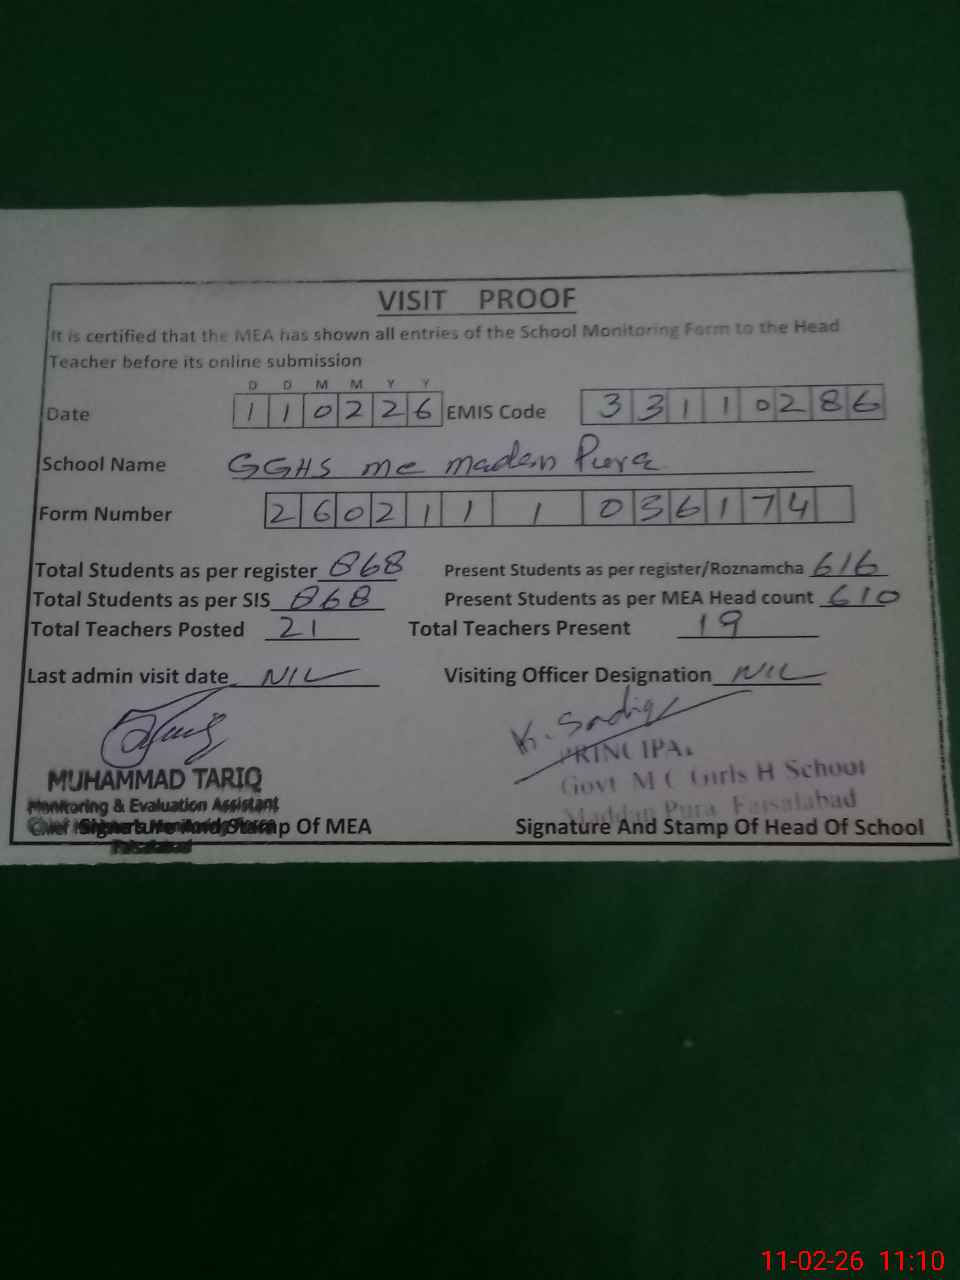 VISIT PROOF
It is certified that the MEA has shown all entries of the School Monitoring Form to the Head
Teacher before its online submission
D D M M Y Y
Date 1 1 0 2 2 6 EMIS Code 3 3 1 1 0 2 8 6
School Name GGHS mc madan Pura
Form Number 2 6 0 2 1 1 1 0 3 6 1 7 4
Total Students as per register 868 Present Students as per register/Roznamcha 616
Total Students as per SIS 868 Present Students as per MEA Head count 610
Total Teachers Posted 21 Total Teachers Present 19
Last admin visit date NIL Visiting Officer Designation NIL
K. Sadiq
PRINCIPAL
MUHAMMAD TARIQ Govt M C Girls H School
Monitoring & Evaluation Assistant Maddan Pura Faisalabad
Signature And Stamp Of MEA Signature And Stamp Of Head Of School
Faisalabad
11-02-26 11:10